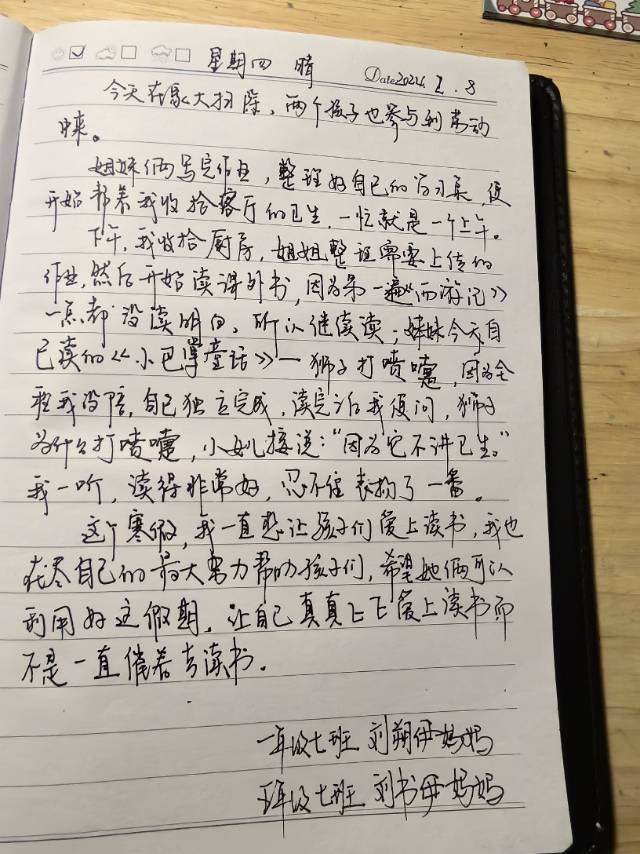 星期四 晴 Date 2024. 2. 8
今天在家大扫除，两个孩子也参与到劳动
中来。
姐妹俩写完作业，整理好自己的学习桌，便
开始帮着我收拾客厅的卫生，一忙就是一个上午。
下午，我收拾厨房，姐姐整理需要上传的
作业，然后开始读课外书，因为第一遍《西游记》
一点都没读明白，所以继续读；妹妹今天自
己读的《小巴掌童话》一狮子打喷嚏，因为全
程我没陪，自己独立完成，读完后我便问，狮子
为什么打喷嚏，小姚接说："因为它不讲卫生。"
我一听，读得非常好，忍不住表扬了一番。
这个寒假，我一直想让孩子们爱上读书，我也
在尽自己的最大努力帮助孩子们，希望她俩可以
利用好这假期，让自己真真正正爱上读书而
不是一直催着去读书。
一年级七班 刘朔伊妈妈
年级七班 刘书伊妈妈